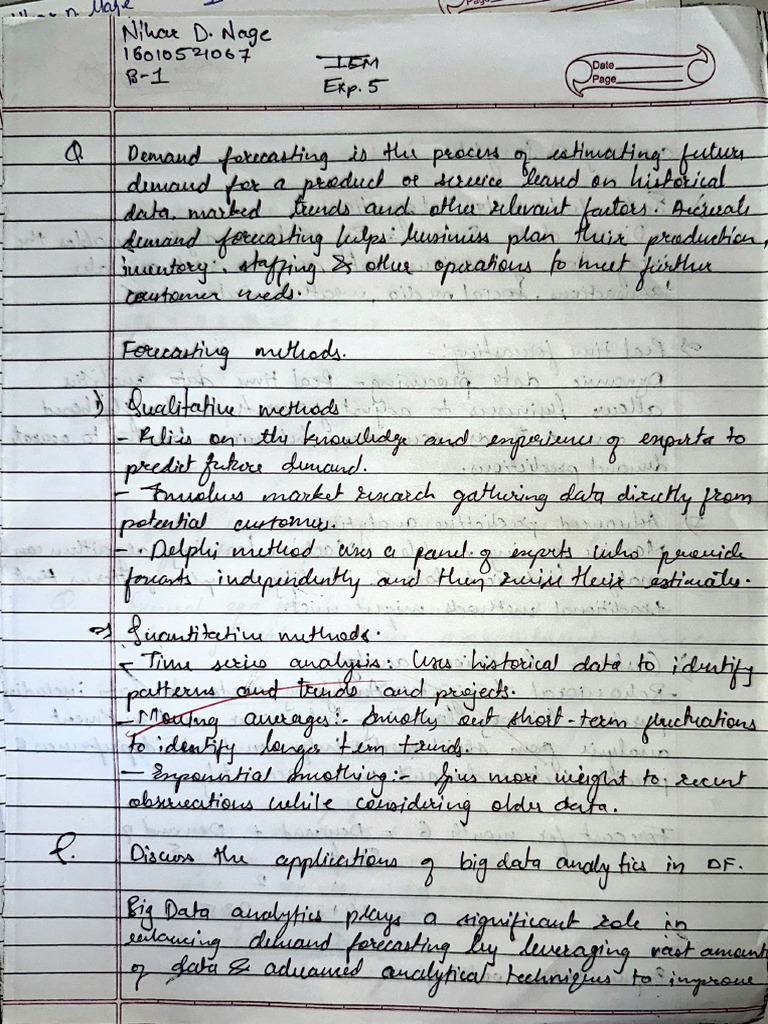 Nihar D. Nage
16010521067
B-1
IEM
Exp. 5
Date
Page
Q. Demand forecasting is the process of estimating future
demand for a product or service based on historical
data, marked trends and other relevant factors. Accurate
demand forecasting helps business plan their production,
inventory, staffing & other operations to meet further
customer needs.
Forecasting methods.
1) Qualitative methods
- Relies on the knowledge and experience of experts to
predict future demand.
- Involves market research gathering data directly from
potential customers.
- Delphi method uses a panel of experts who provide
forecasts independently and then revise their estimates.
2) Quantitative methods.
- Time series analysis: Uses historical data to identify
patterns and trends and projects.
- Moving averages:- Smoothly out short-term fluctuations
to identify longer term trends.
- Exponential smoothing:- Gives more weight to recent
observations while considering older data.
Q. Discuss the applications of big data analytics in DF.
Big Data analytics plays a significant role in
enhancing demand forecasting by leveraging vast amount
of data & advanced analytical techniques to improve